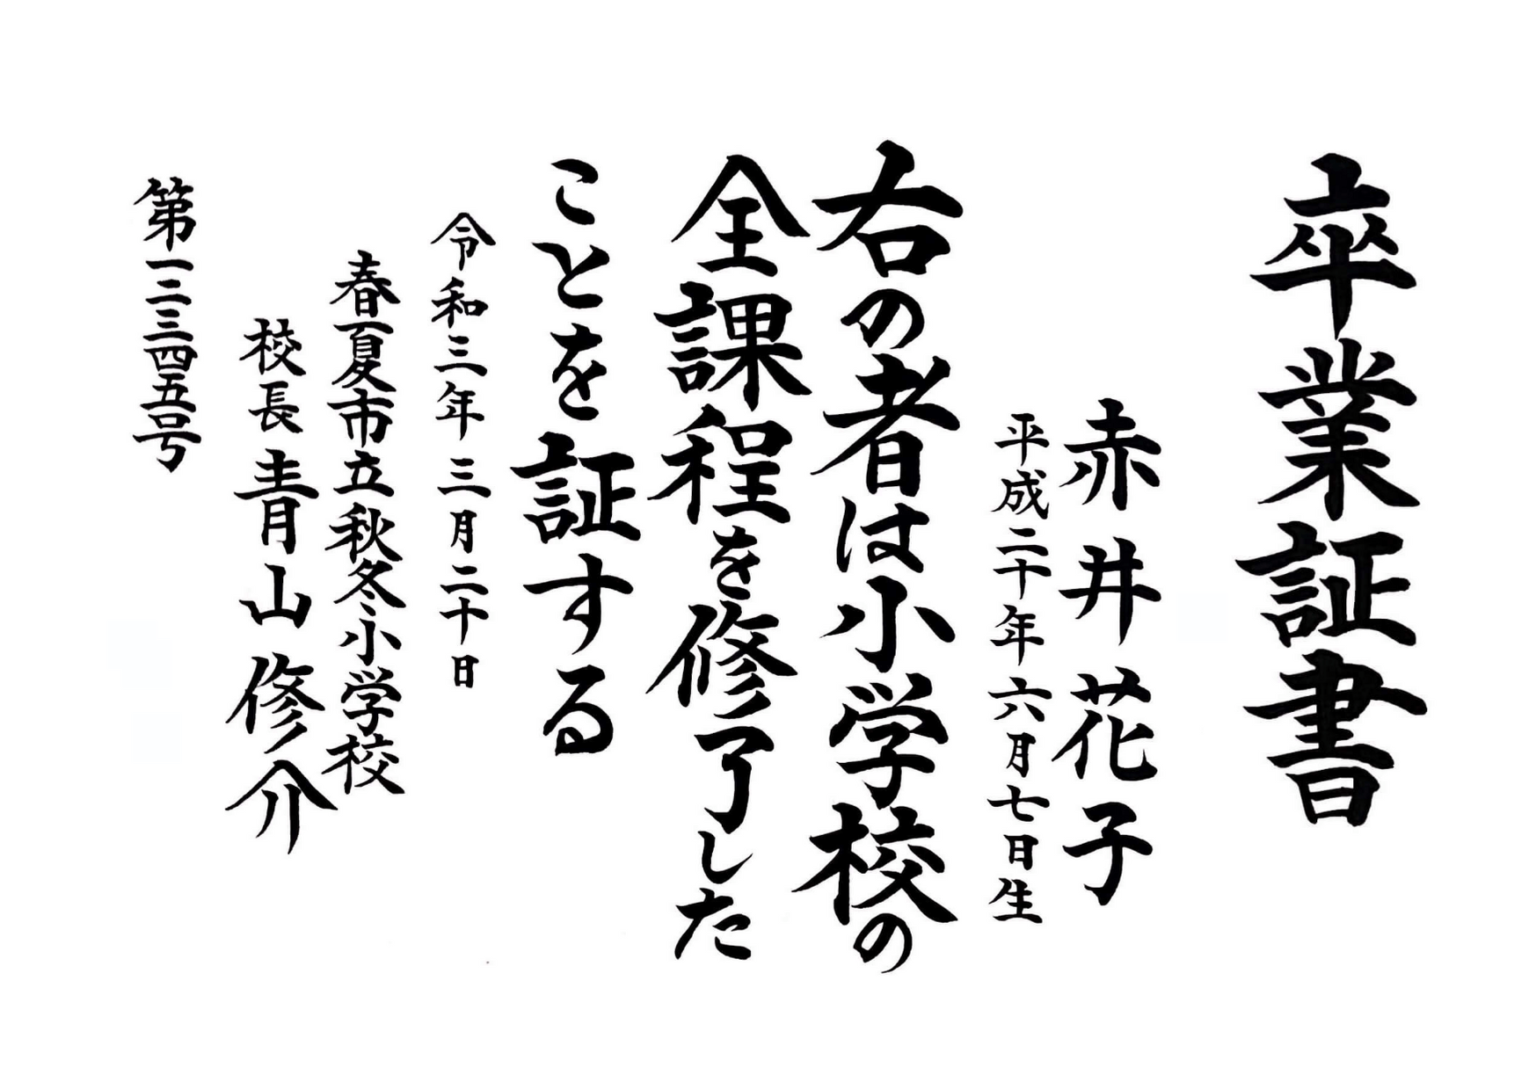 卒業証書
赤井花子
平成二十年六月七日生
右の者は小学校の
全課程を修了した
ことを証する
令和三年三月二十日
春夏市立秋冬小学校
校長青山修介
第一二三四五号